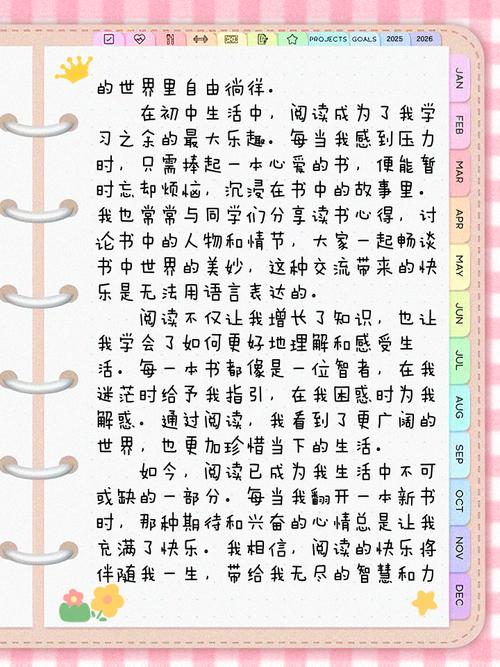 PROJECTS GOALS 2025 2026
的世界里自由徜徉。
在初中生活中，阅读成为了我学
习之余的最大乐趣。每当我感到压力
时，只需捧起一本心爱的书，便能暂
时忘却烦恼，沉浸在书中的故事里。
我也常常与同学们分享读书心得，讨
论书中的人物和情节，大家一起畅谈
书中世界的美妙，这种交流带来的快
乐是无法用语言表达的。
阅读不仅让我增长了知识，也让
我学会了如何更好地理解和感受生
活。每一本书都像是一位智者，在我
迷茫时给予我指引，在我困惑时为我
解惑。通过阅读，我看到了更广阔的
世界，也更加珍惜当下的生活。
如今，阅读已成为我生活中不可
或缺的一部分。每当我翻开一本新书
时，那种期待和兴奋的心情总是让我
充满了快乐。我相信，阅读的快乐将
伴随我一生，带给我无尽的智慧和力
JAN
FEB
MAR
APR
MAY
JUN
JUL
AUG
SEP
OCT
NOV
DEC